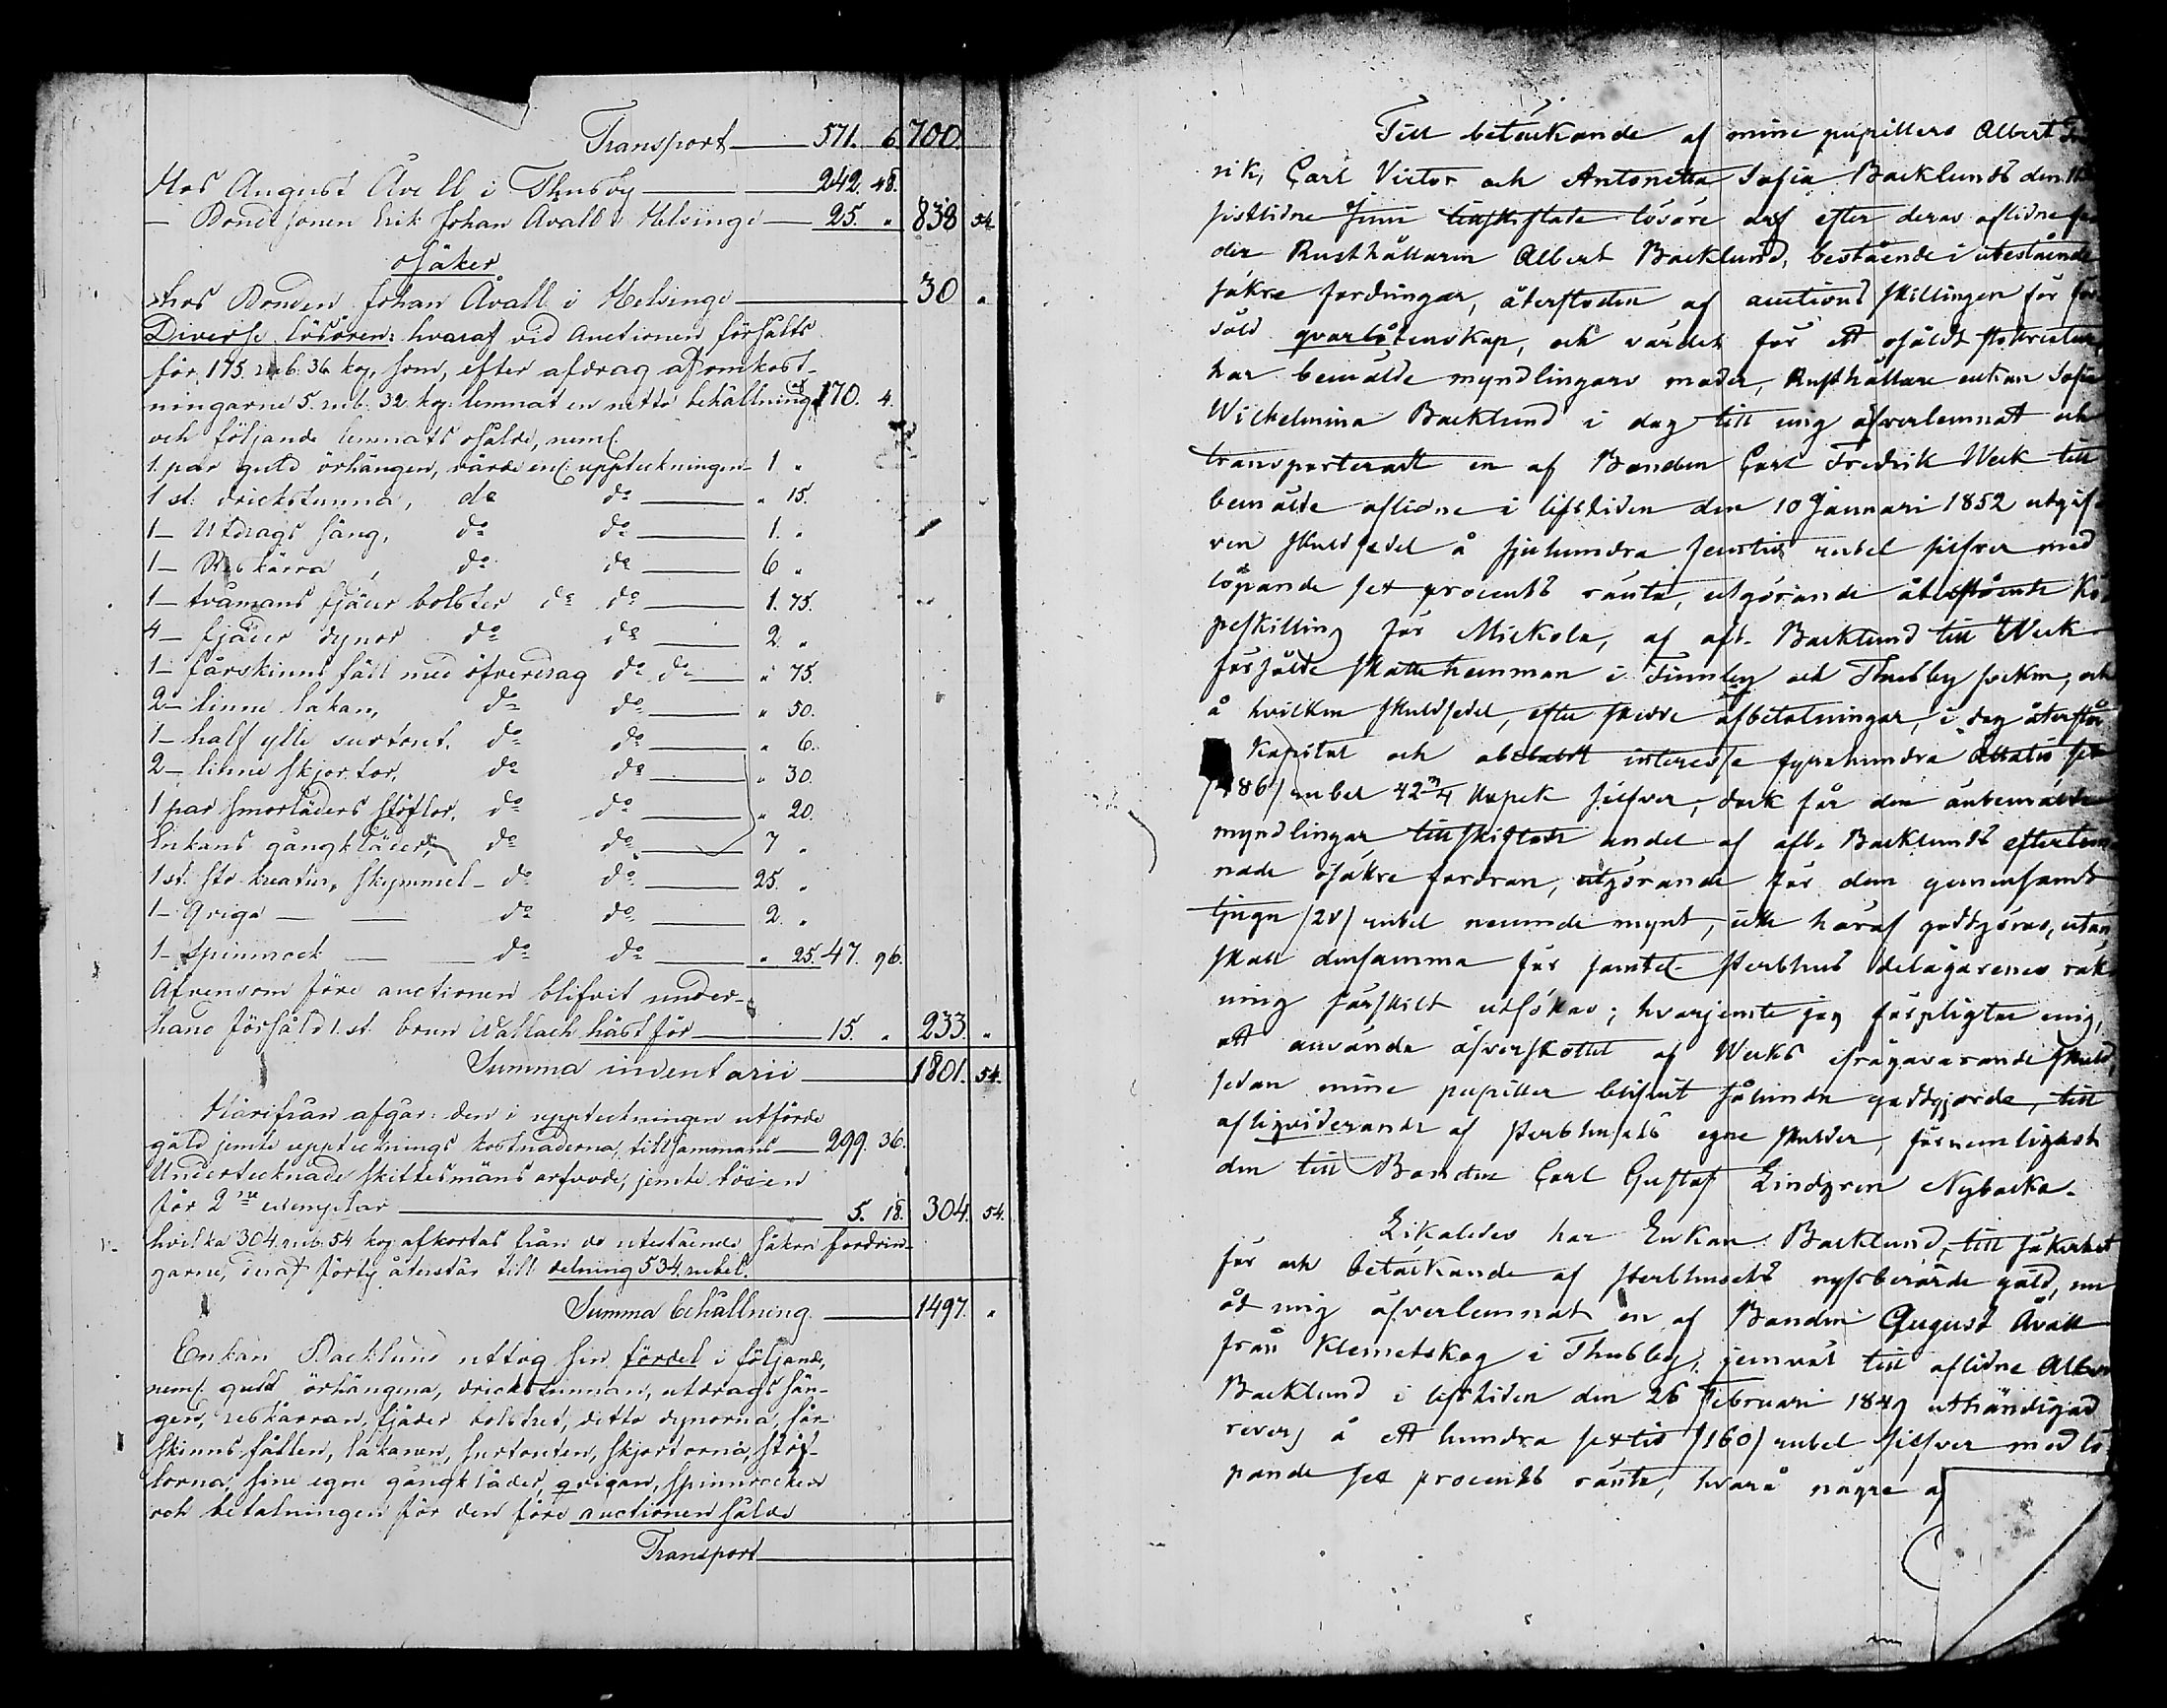 Transport 571. 6. 700.
Hos August Åvall i Thusby 242. 48.
— Bondesonen Erik Johan Åvall i Helsinge 25. " 838 54.
osäker
hos Bonden Johan Åvall i Helsinge 30 "
Diverse lösören: hvaraf vid Auctionen försålts
för 175. rub. 36 kop. som, efter afdrag af omkost-
ningarne 5. rub. 32 kop. lemnat en netto behållning af 170. 4.
och följande lemnats osålde, neml.
1. par guld örhängen, värde enl. uppteckningen 1 "
1 st. drickstunna, do do " 15.
1— Utdrags säng, do do 1. "
1— Reskärra, do do 6 "
1— tvåmans fjäder bolster do do 1. 75.
4— fjäder dynor do do 2. "
1— fårskinns fäll med öfverdrag do do " 75.
2— linne lakan, do do " 50.
1— half ylle surtout, do do " 6.
2— linne skjortor, do do " 30.
1 par smorläders stöflor, do do " 20.
Enkans gångkläder, do do 7 "
1 st. sto kreatur, skymmel— do do 25. "
1— Griga — do do 2. "
1— Spinnrock — do do " 25. 47. 96.
Äfvensom före auctionen blifvit under-
hand försåld 1. st. brun Wallach häst för 15. " 233. "
Summa inventarii 1801. 54.
Härifrån afgår: den i uppteckningen utförde
gäld jemte upptecknings kostnaderna, tillsammans 299. 36.
Undertecknade skiftesmäns arfvode, jemte lösen
för 2ne exemplar 5. 18. 304. 54.
hvilka 304. rub. 54 kop. afkortas från de utestående säkra fordrin-
garne, deraf förty återstår till delning 534. rubel.
Summa behållning 1497. "
Enkan Backlund uttog sin fördel i följande,
neml. guld örhängena, drickstunnan, utdrags sän-
gen, reskärran, fjäder bolstret, ditto dynorna, får-
skinns fällen, lakanen, surtouten, skjortorna, stöf-
lorna, sine egne gångkläder, grigan, spinnrocken
och betalningen för den före auctionen sålde
Transport
Till betäckande af mine pupillers Albert
rik, Carl Victor och Antonetta Sofia Backlunds den
sistlidne Junii tillskiftade lösöre arf efter deras aflidne fa-
der Rusthållaren Albert Backlund, bestående i utestående
säkre fordringar, återstoden af auctions skillingen för för-
såld qvarlåtenskap, och värdet för ett osåldt stokreatur,
har bemälde myndlingars moder, Rusthållare enkan Sofia
Wilhelmina Backlund i dag till mig öfverlemnat och
transporteradt en af Bonden Carl Fredrik Week till
bemälde aflidne i lifstiden den 10 Januari 1852 utgif-
ven skuldsedel å sjuhundra femtio rubel silfver med
löpande sex procents ränta, utgörande återstående Kö-
peskilling för Mickola, af afl. Backlund till Week
försålde skattehemman i Finnby och Thusby socken, och
å hvilken skuldsedel, efter skedde afbetalningar, i dag återstår
Kapital och obetaldt interesse fyrahundra åttatio sex
/486/ rubel 42 3/4 kopek silfver, dock får den ånbemälde
myndlingar tillskiftade andel af afl. Backlunds efterlem-
nade osäkre fordran, utgörande för dem gemensamt
tjugu /20/ rubel nämnde mynt, icke häraf godtgöras, utan
skall densamma för samtel. sterbhus delägarenes räk-
ning särskilt utsökas; hvarjemte jag förpligtar mig,
att använda öfverskottet af Weeks ifrågavarande skuld,
sedan mine pupiller blifvit sålunda godtgjorde, till
afliqviderande af sterbhusets egne skulder, förnemligast
den till Bonden Carl Gustaf Lindgren Nybacka.
Likaledes har Enkan Backlund, till säkerhet
för och betäckande af sterbhusets nyssberörde gäld, nu
åt mig öfverlemnat en af Bonden August Åvall
från Klemetskog i Thusby, jemväl till aflidne Albert
Backlund i lifstiden den 26 Februari 1849 uthändigad
revers å ett hundra sextio /160/ rubel silfver med lö-
pande sex procents ränta, hvarå någre a